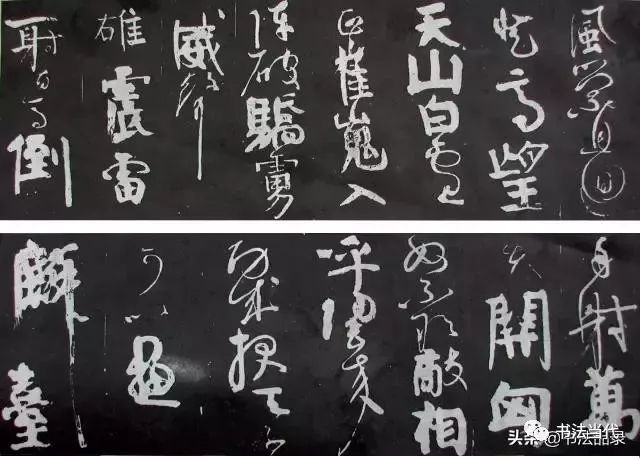 風縈且回
登高望
天山白雲
正崔嵬入
陣破驕虜
威聲
雄震雷
一射百馬倒
再射萬
夫開匈
奴不敢敵相
呼歸去來
功成報天子
可以畫
麟臺
书法当代